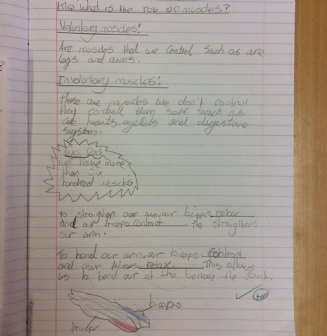 what is the role of muscles?
Voluntary muscles:
Are muscles that we control such as are
legs and arms.
Involuntary muscles:
These are muscles we don't control
they control them self such as
are hearts eyelids and digestive
system.
Fun fact
we have more
than six
hundred muscles
To straighten our arm, our biceps relax
and our triceps contract. the straightens
our arm.
To bend our arm, our biceps contract
and our triceps relax. This allows
us to bend at the
biceps
tricep